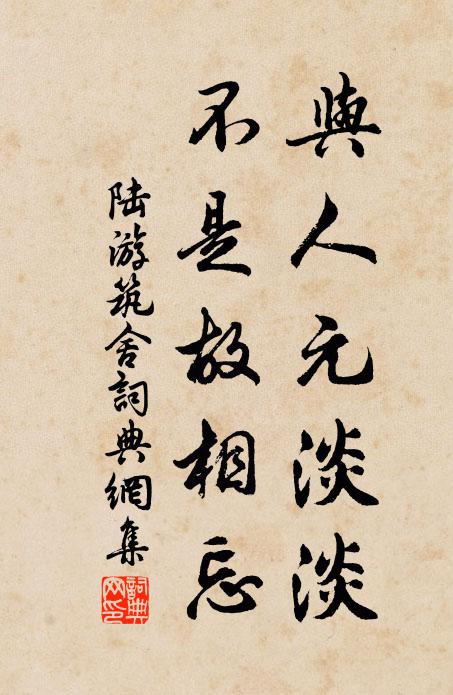 與人元淡淡
不是故相忘
陸游筑舍詞典網集
詞典網印